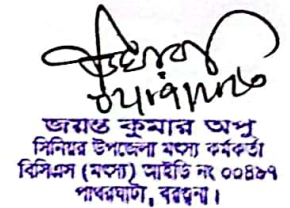 জয়ন্ত কুমার অপু
সিনিয়র উপজেলা মৎস্য কর্মকর্তা
বিসিএস (মৎস্য) আইডি নং ০০৪৮৭
পাথরঘাটা, বরগুনা।